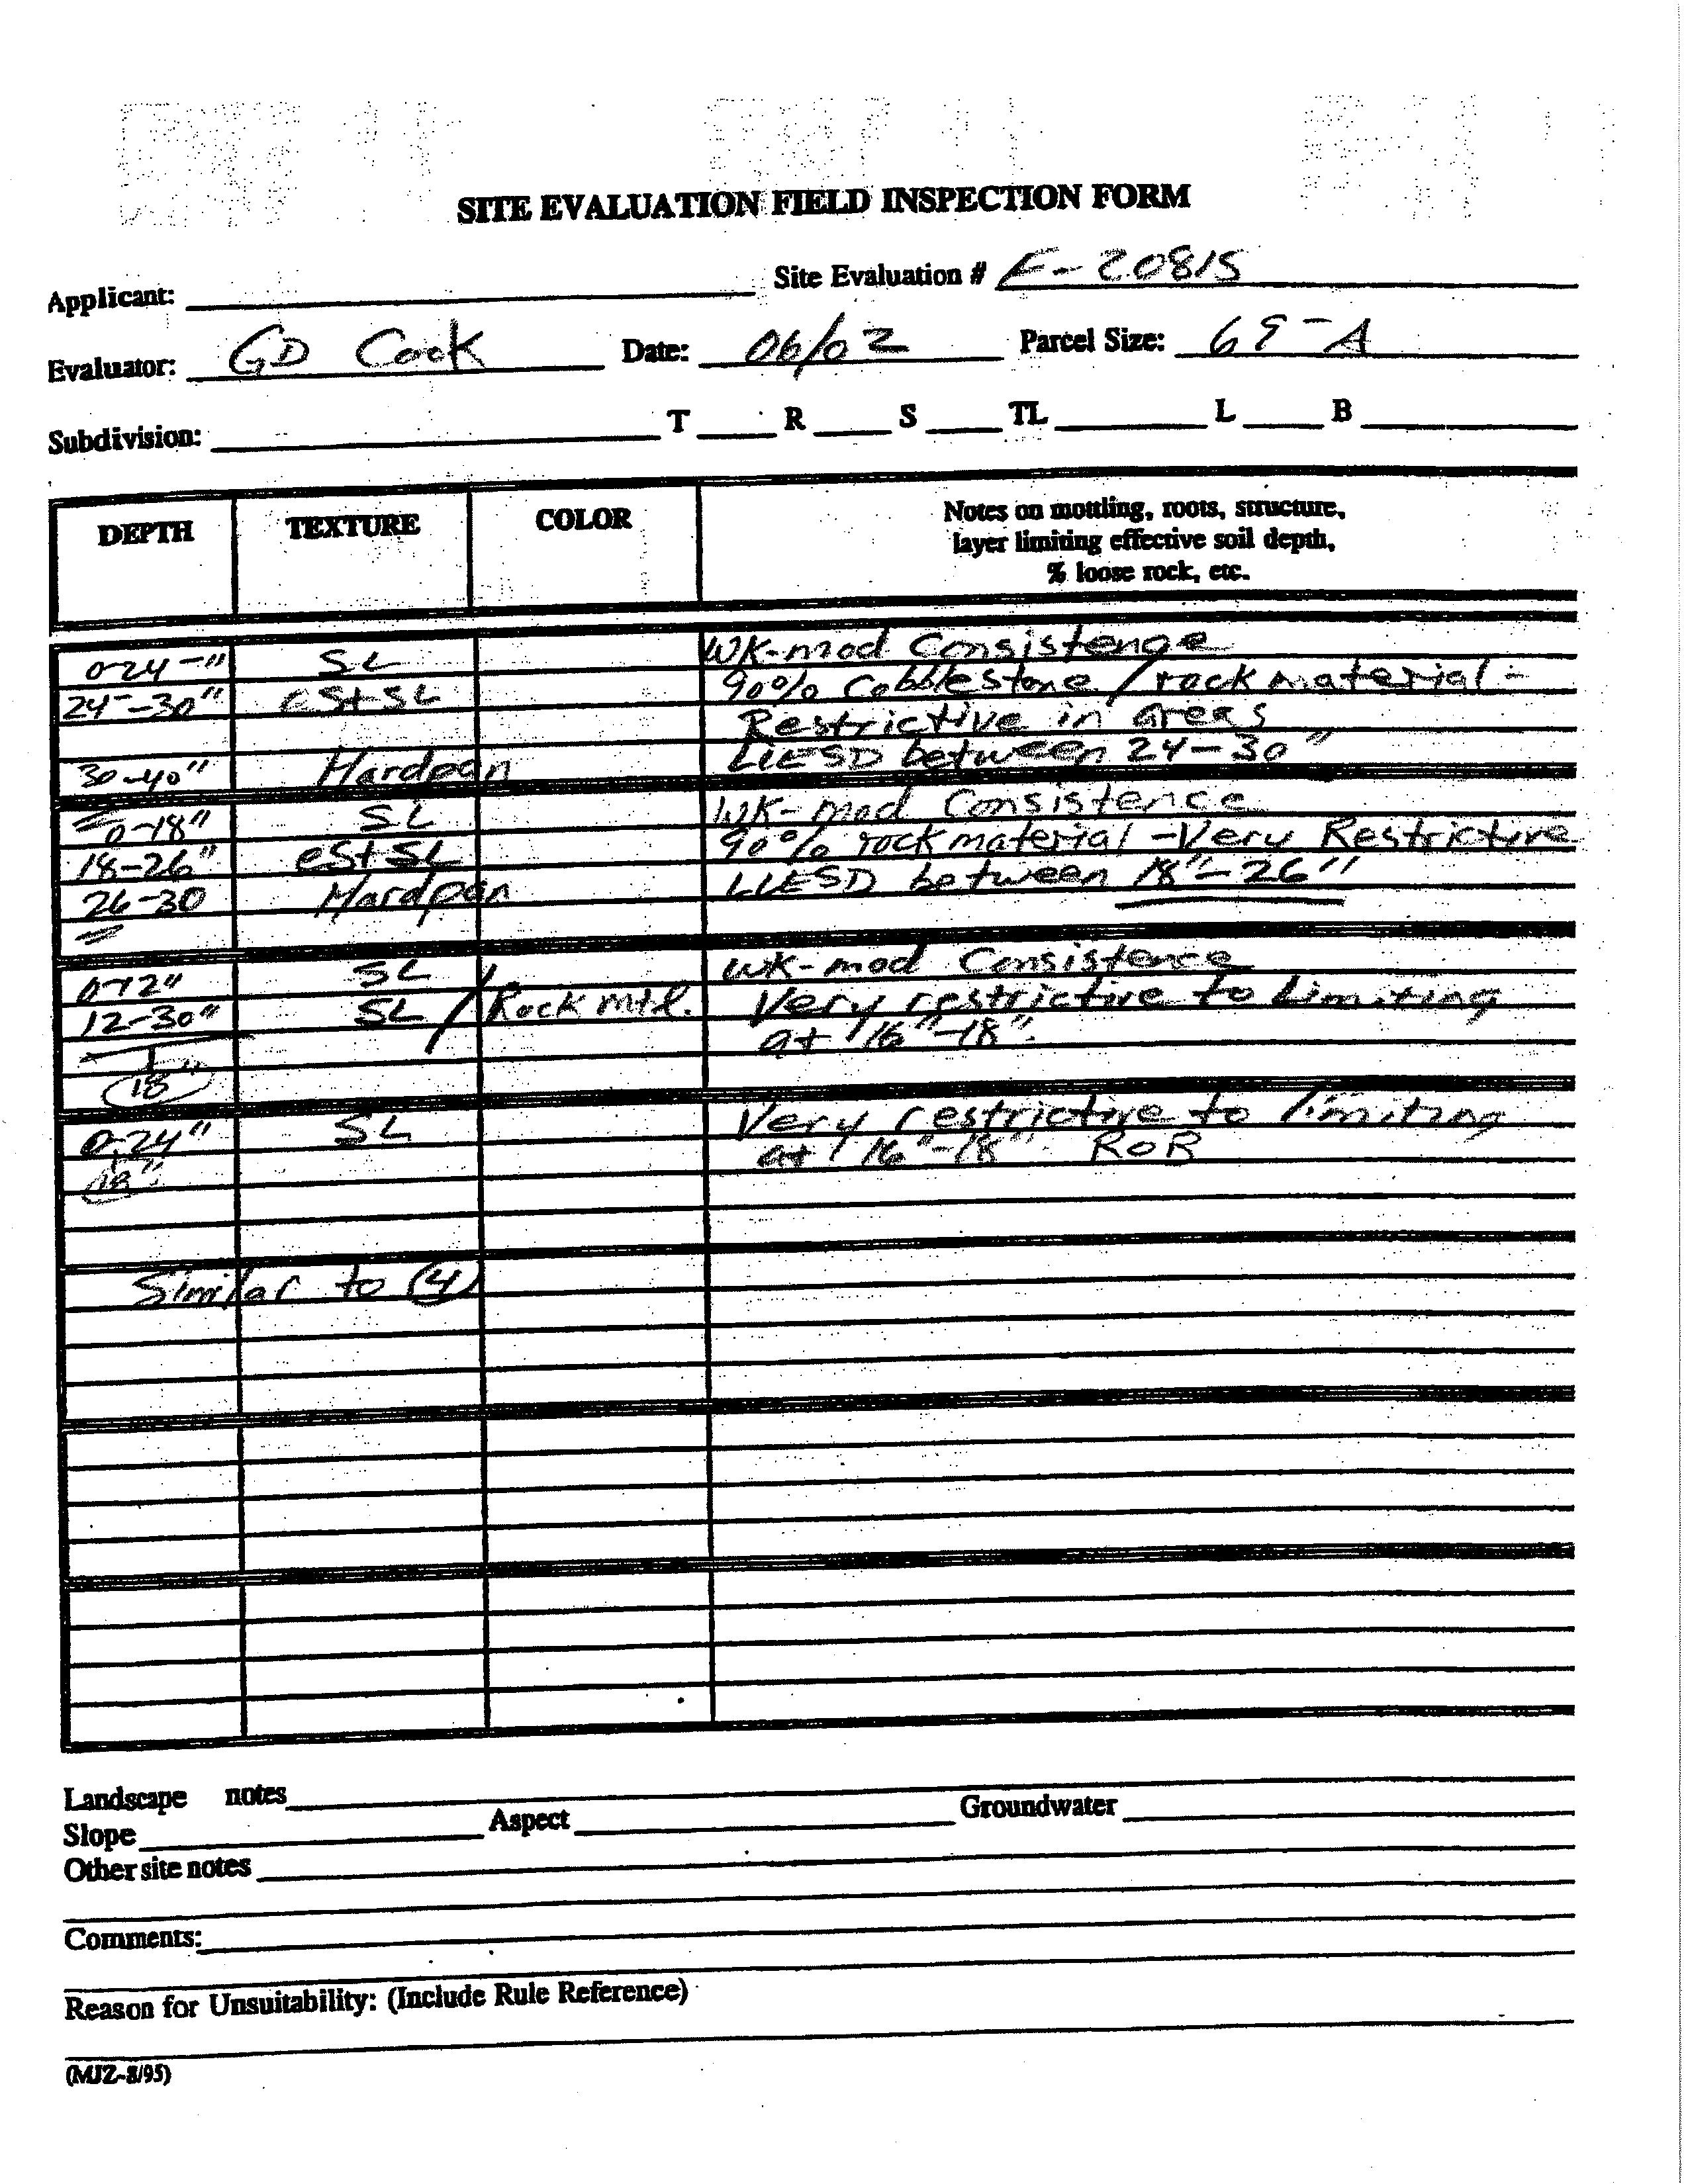 SITE EVALUATION FIELD INSPECTION FORM
Applicant: Site Evaluation # E-20815
Evaluator: GD Cook Date: 06/02 Parcel Size: -A
Subdivision: T R S TL L B
DEPTH TEXTURE COLOR Notes on mottling, roots, structure,
layer limiting effective soil depth,
% loose rock, etc.
0-24-" SL WK-mod Consistence
24-30" eStSL 90% Cobblestone / rock material -
Restrictive in areas
30-40" Hardpan LLESD between 24-30"
0-18" SL WK-mod Consistence
18-26" eStSL 90% rock material - Very Restrictive
26-30 Hardpan LLESD between 18"-26"
0-12" SL WK-mod Consistence
12-30" SL / Rock mtl. Very restrictive to Limiting
at 16"-18".
18"
0-24" SL Very restrictive to limiting
18" at 16"-18" RoR
Similar to (4)
Landscape notes
Slope Aspect Groundwater
Other site notes
Comments:
Reason for Unsuitability: (Include Rule Reference)
(MJZ-8/95)